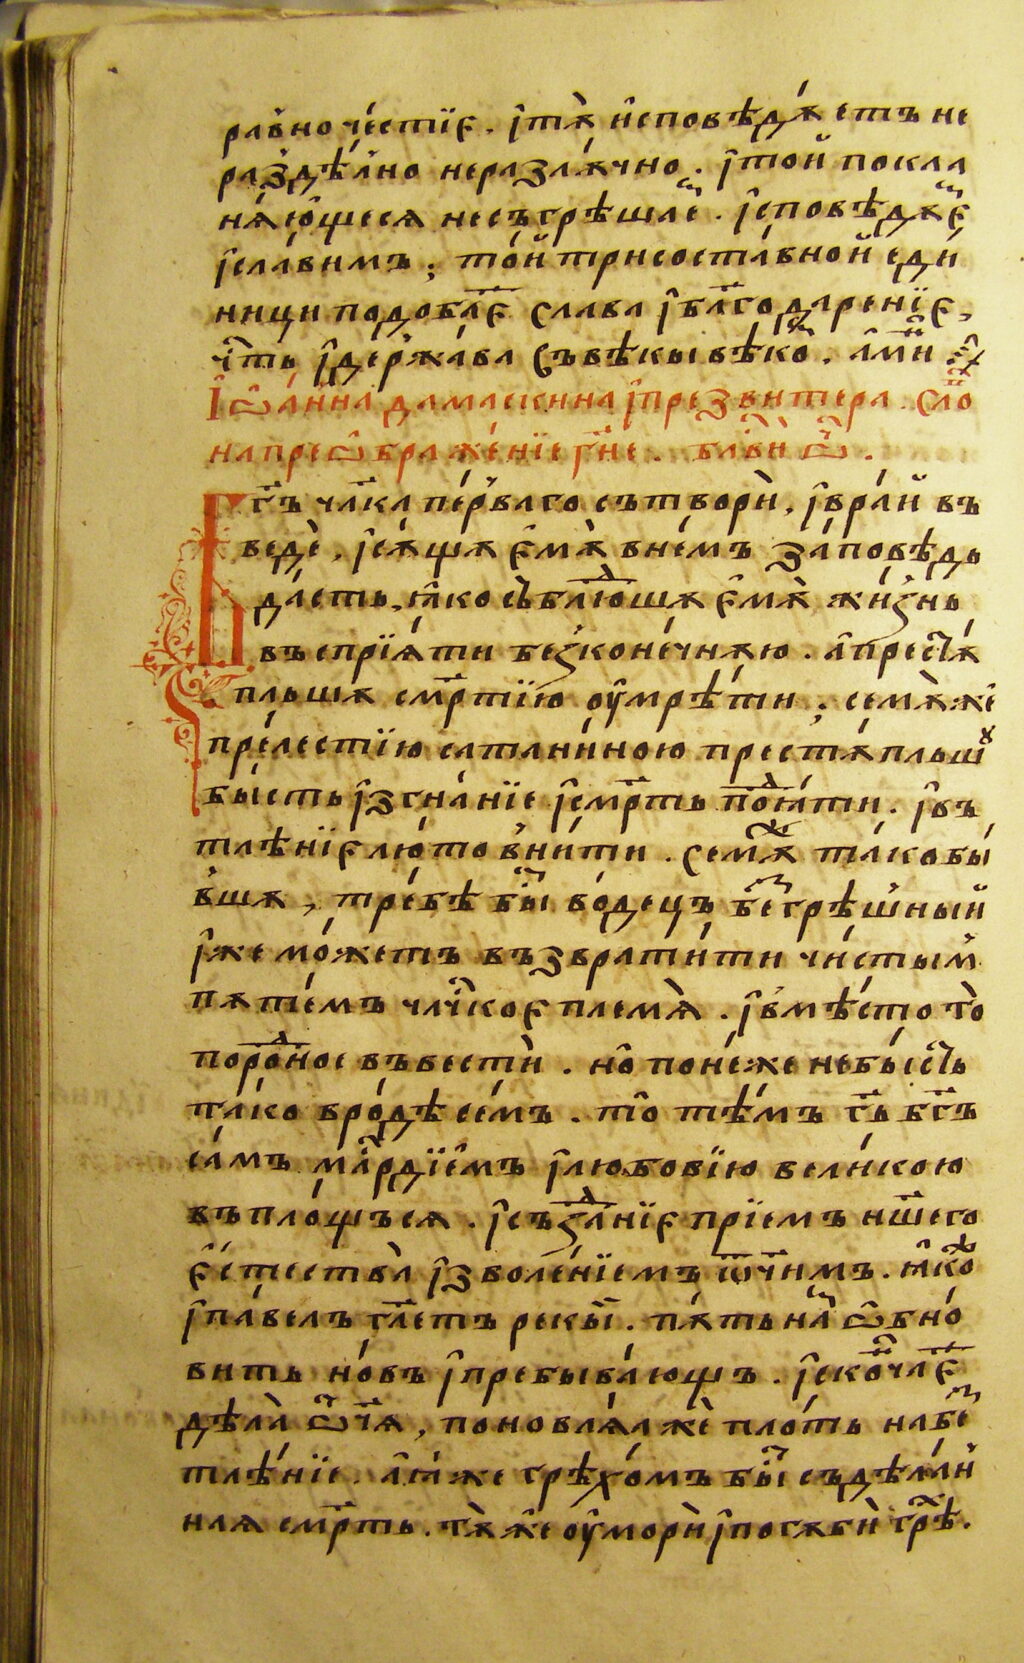 равно чéстїє . і҆тѫ̀ и҆сповѣдꙋ́етъ не
разⸯдѣ́лно неразлꙋ́чно . і҆то́й покла
нѧ́ю҆щесѧ несъгрѣшаеⷨ . і҆сповѣдꙋеⷨ
і҆сла́вимъ ; то́й трисоста́вной еди́
ници подоба́ет҃ слава і҆бл҃годаренїє ,
чⷭ҇ть і҆держа́ва въвѣкы вѣкоⷨ . а҆ми́н
І҆ѡа́нна дамаскина і҆презвитера . сло́
на преѡ҆браже́нїе гн҃е . бл҃ви ѡ҃ч .
Г҃ь чл҃ка пе́рваго сътвори̑ , і҆вра́й въ
веде̑ , і҆сꙋ́щꙋ є҆мꙋ̀ вне́мъ за́повѣдь
да́сть , ꙗ҆́ко съблю́дшꙋ є҆мꙋ̀ жи́знь
въспрїѧ́ти безконе́чнꙋю . а҆престꙋ́
пльшꙋ см҃ртїю оу҆мрѣ́ти ; семꙋ̀же
пре́лестїю сатани́ною престꙋ́пльшꙋ
бы́сть і҆згна́нїе і҆см҃рть подъꙗ́ти . і҆въ
тлѣ́нїє лю́то вни́ти . семꙋ̀ж та́ко бы́
вшꙋ , тре́бѣ бы во́децъ безгрѣ́шный
і҆же мо́жетъ възврати́ти чи́стым
пꙋте́мъ чл҃чкоє племѧ̀ . і҆вмѣ́сто то̀
породное въвести̑ . но̑ поне́же небы́сть
та́ко бро́дѣ се́мъ . то̑ тѣ́мъ г҃ь бг҃ъ
са́мъ мл҃рдїемъ і҆любовїю вели́кою
въпло́щъсѧ . і҆създанїє прїемъ нш҃его
є҆стества̀ і҆зволе́нїемъ ѿч҃имъ . ꙗ҆коⷤ
і҆па́велъ гл҃етъ рекы̑ . пꙋ́ть на́м ѡ҆бно́
вить но́въ і҆пребыва́ющъ . і҆сконча́є
дѣ́ла ѡ҆́ч҃ꙗ , поновлѧ́ꙗ же̑ пло́ть на без
тлѣ́нїе . а҆ꙗ́же грѣхо́мъ бы съдѣ́ланⸯ
наꙗ см҃рть . тꙋ̀ же оу҆мори̑ і҆погꙋби̑ грѣх .